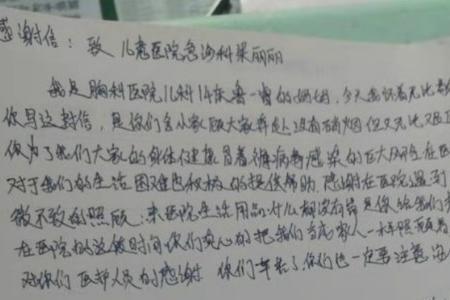 感谢信：致 儿童医院急诊科梁丽丽
我是胸科医院儿科14床鲁一曾的妈妈，今天我怀着无比
你写这封信，是你们舍小家顾大家奔赴没有硝烟但又无比
你为了我们大家的身体健康冒着被病毒感染的巨大风险在医
对于我们的生活困难也积极的提供帮助，感谢在医院遇到
微不致的照顾；来医院生活用品什么都没有带是你给我们
在医院的这段时间你们真心的把我们当成家人一样照顾着
对你们医护人员的感谢 你们辛苦了，你们也一定要注意安